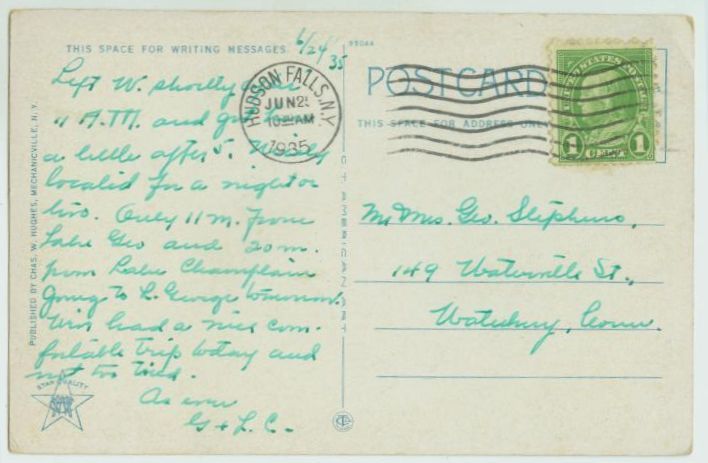 THIS SPACE FOR WRITING MESSAGES
6/24
35
Left W. shortly
11 A.M. and
a little after 5. Nicely
located for a night or
two. Only 11 m. from
Lake Geo and 20 m.
from Lake Champlain
Going to L. George tomorrow.
had a nice com-
fortable trip today and
not too tired.
As ever
G + L. C-
PUBLISHED BY CHAS. W. HUGHES, MECHANICVILLE, N. Y.
STAR QUALITY
HUDSON FALLS, N.Y.
JUN 2
AM
1935
POST CARD
THIS SPACE FOR ADDRESS ONLY
UNITED STATES POSTAGE
1 1
Mr Mrs. Geo. Stephens,
149 Waterville St.,
Waterbury, Conn.
CT